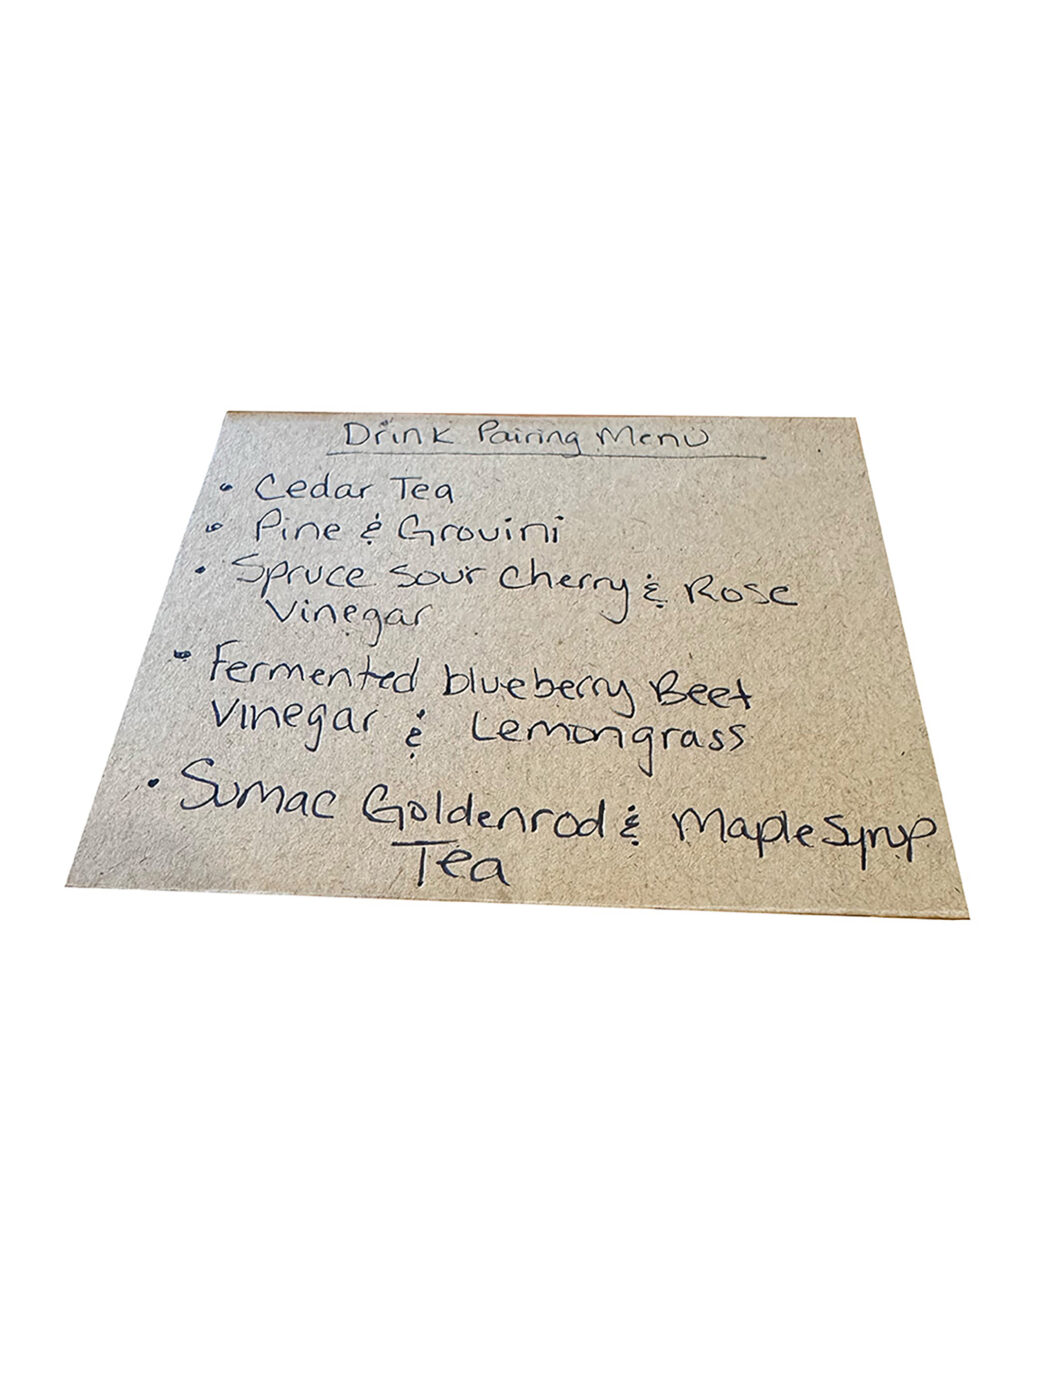 Drink Pairing Menu
• Cedar Tea
• Pine & Grouini
• Spruce sour cherry & Rose
Vinegar
• Fermented blueberry Beet
Vinegar & Lemongrass
• Sumac Goldenrod & Maple Syrup
Tea